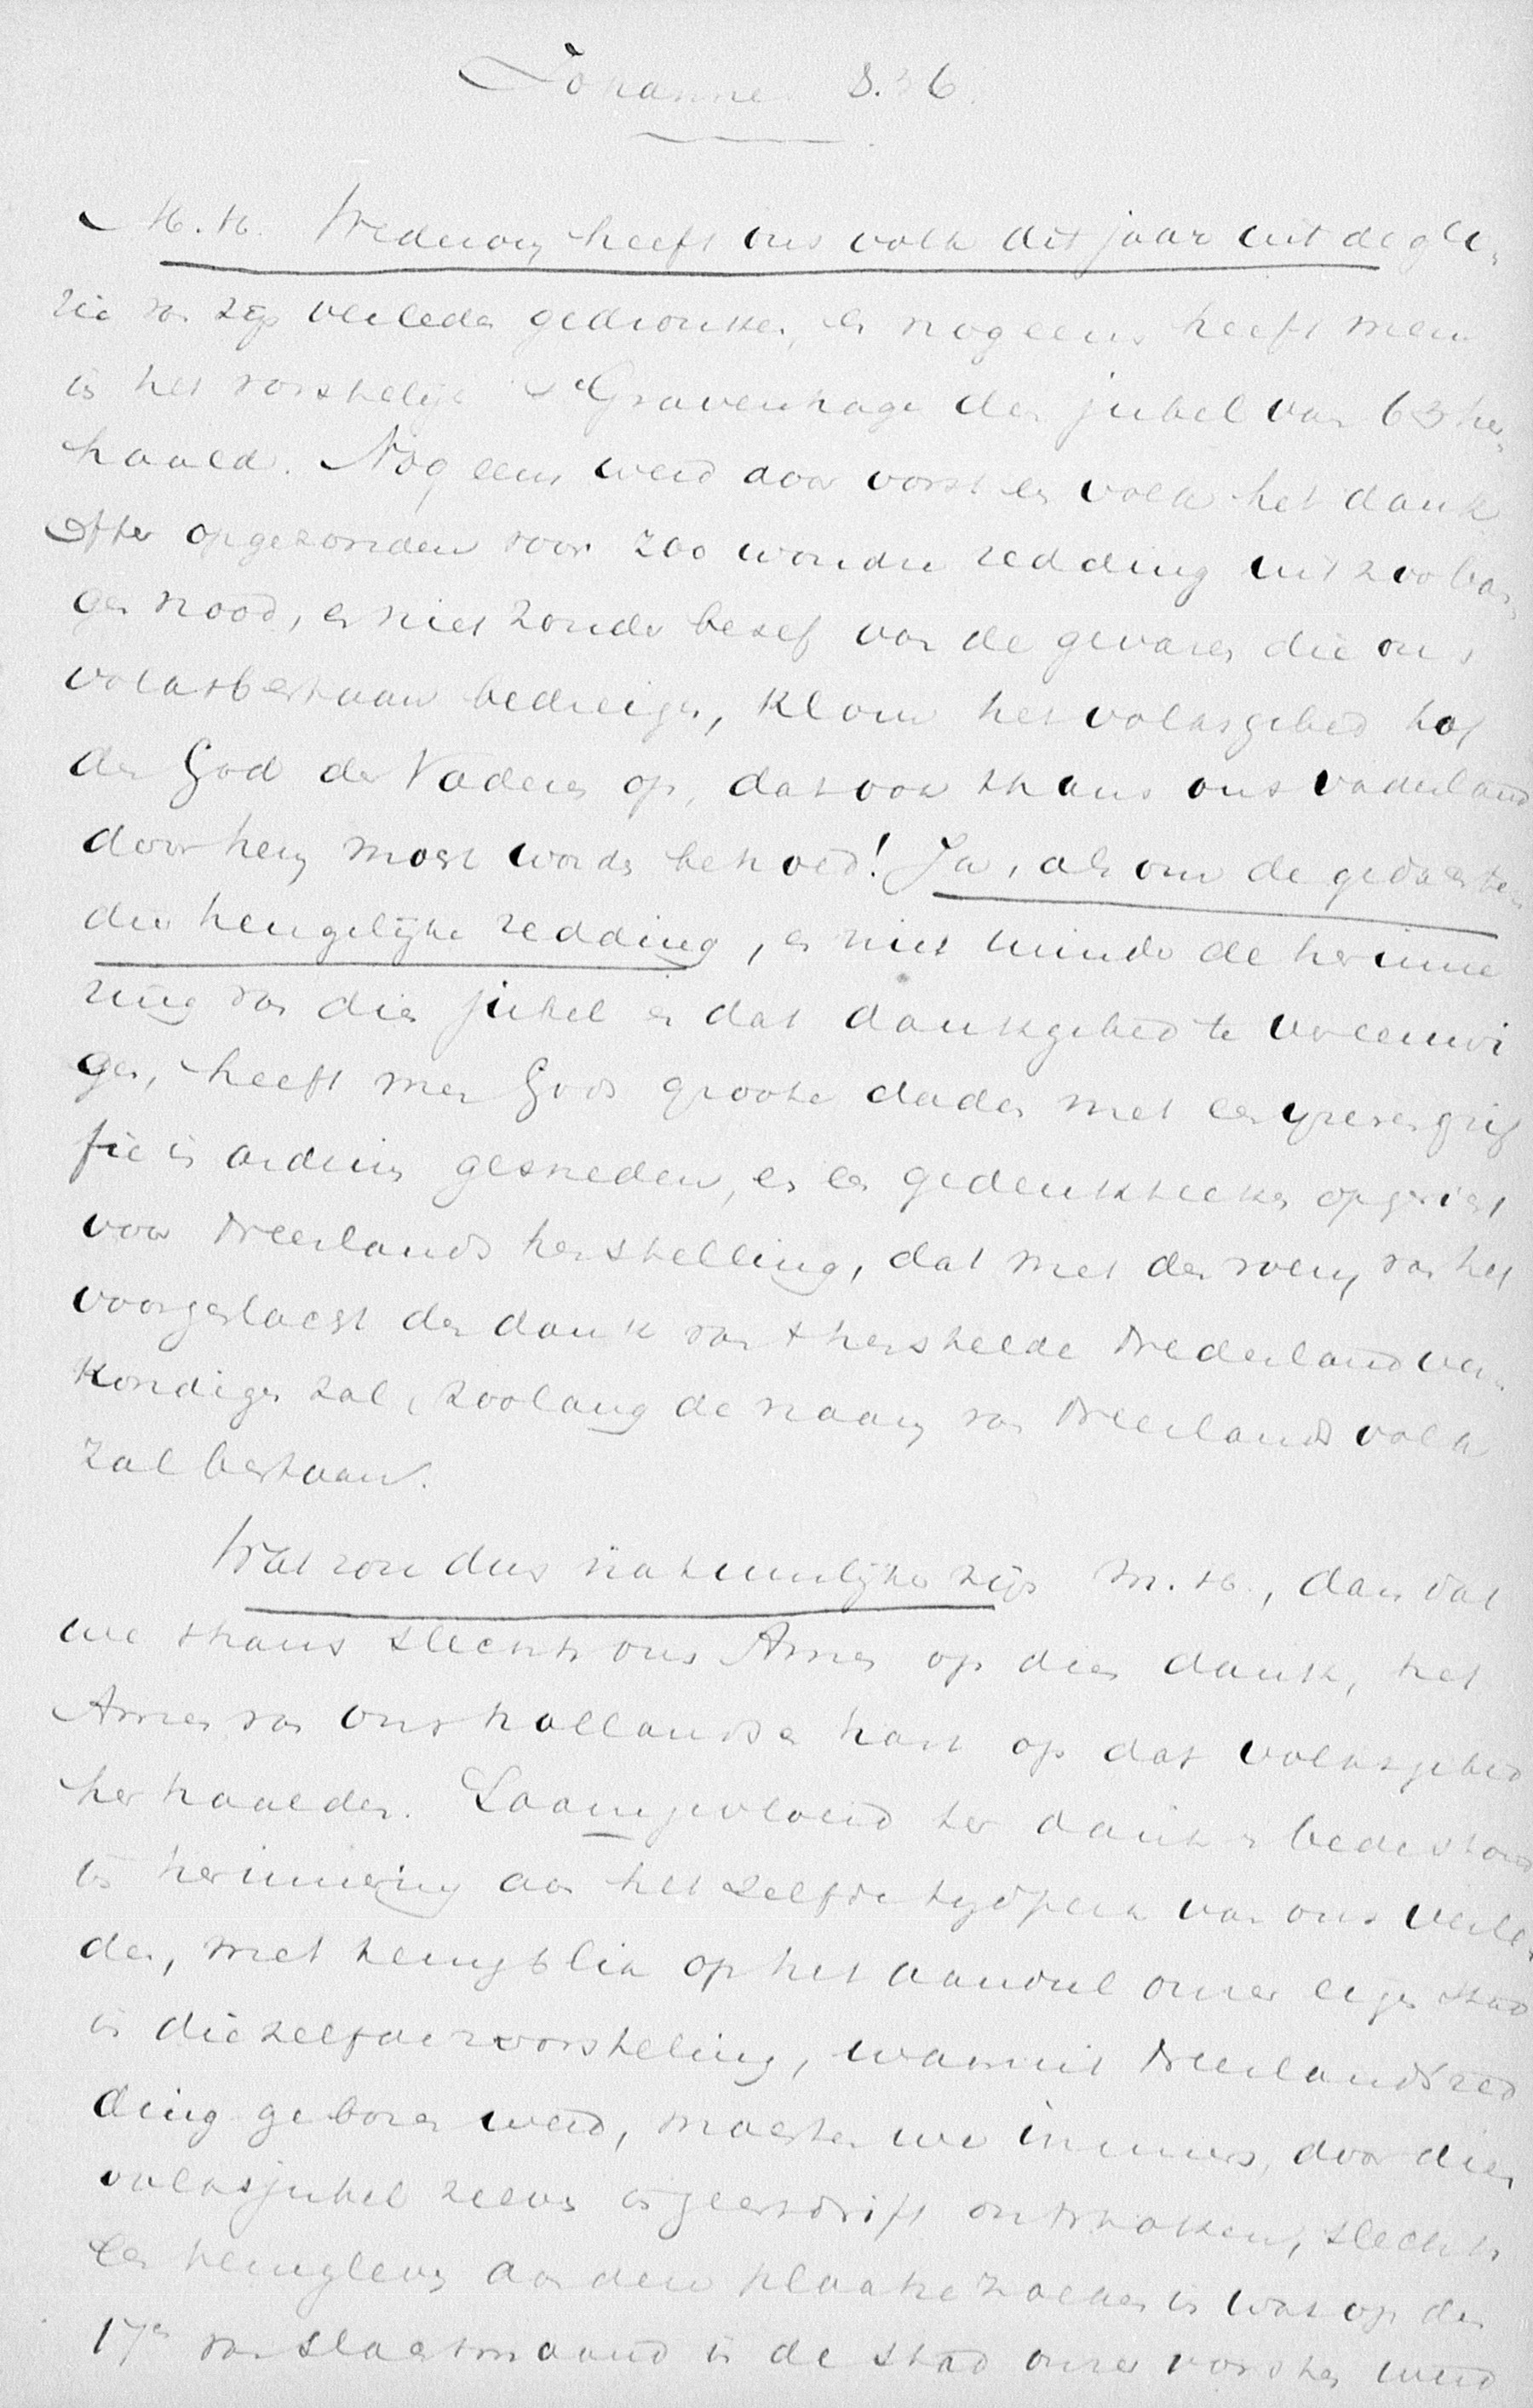 Johannes 8.36.
M.H. Wederom heeft ons volk dit jaar uit de glo-
rie van zijn verleden gedronken, en nog eens heeft men
in het vorstelijk 's Gravenhage den jubel van 63 her-
haald. Nog eens werd door vorst en volk het dank-
offer opgezonden voor zoo wondre redding uit zoo ban-
gen nood, en niet zonder besef van de gevaren die ons
volksbestaan bedreigen, klom het volksgebed tot
den God der Vaderen op, dat ook thans ons vaderland
door hem mogt worden behoed! Ja, als om de gedachtenis
dier heugelijke redding, en niet minder de herinne
ring van dien jubel en dat dankgebed te vereeuwi
gen, heeft men Gods groote daden met een ijzeren grif
fie in arduin gesneden, en een gedenkteeken opgerigt
voor Neerlands herstelling, dat met den roem van het
voorgeslacht den dank van 't herstelde Nederland ver-
kondigen zal, zoolang de naam van Neerlands volk
zal bestaan.
Wat zou dus natuurlijker zijn M.H., dan dat
we thans slechts ons Amen op dien dank, het
Amen van ons hollandsch hart op dat volksgebed
herhaalden. Saamgevloeid ter dank en bedestond
in herinnering aan hetzelfde tijdperk van ons verle-
den, met terugblik op het aandeel onzer eigen stad
in diezelfde worsteling, waaruit Neerlands red
ding geboren werd, mogten we immers, door dien
volksjubel zelven in geestdrift ontstoken, slechts
een terugleven aan den plaats zoeken in wat op den
17n van slagtmaand in de stad onzer vorsten werd